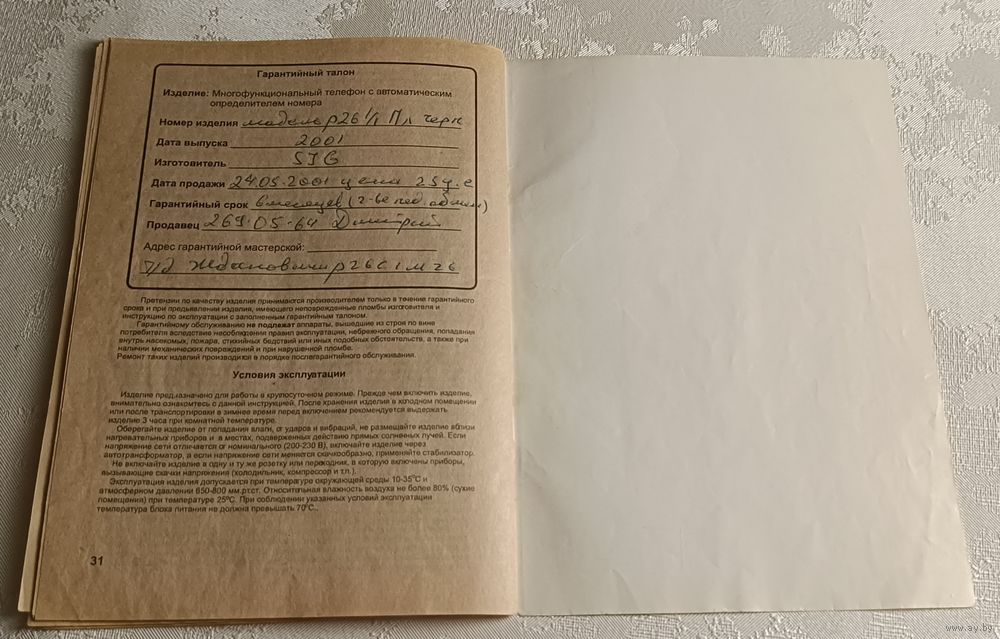 Гарантийный талон
Изделие: Многофункциональный телефон с автоматическим
определителем номера
Номер изделия модель р26 1/1 Пл черн
Дата выпуска 2001
Изготовитель
Дата продажи 24.05.2001 цена 25 у.е
Гарантийный срок 6 месяцев (2-ве нед. обмен)
Продавец 269-05-64 Дмитрий
Адрес гарантийной мастерской:
т/д Ждановичи р26 с1 м26
Претензии по качеству изделия принимаются производителем только в течение гарантийного
срока и при предъявлении изделия, имеющего неповрежденные пломбы изготовителя и
инструкцию по эксплуатации с заполненным гарантийным талоном.
Гарантийному обслуживанию не подлежат аппараты, вышедшие из строя по вине
потребителя вследствие несоблюдения правил эксплуатации, небрежного обращения, попадания
внутрь насекомых, пожара, стихийных бедствий или иных подобных обстоятельств, а также при
наличии механических повреждений и при нарушенной пломбе.
Ремонт таких изделий производится в порядке послегарантийного обслуживания.
Условия эксплуатации
Изделие предназначено для работы в круглосуточном режиме. Прежде чем включить изделие,
внимательно ознакомтесь с данной инструкцией. После хранения изделия в холодном помещении
или после транспортировки в зимнее время перед включением рекомендуется выдержать
изделие 3 часа при комнатной температуре.
Оберегайте изделие от попадания влаги, от ударов и вибраций, не размещайте изделие вблизи
нагревательных приборов и в местах, подверженных действию прямых солнечных лучей. Если
напряжение сети отличается от номинального (200-230 В), включайте изделие через
автотрансформатор, а если напряжение сети меняется скачкообразно, применяйте стабилизатор.
Не включайте изделие в одну и ту же розетку или переходник, в которую включены приборы,
вызывающие скачки напряжения (холодильник, компрессор и т.п.).
Эксплуатация изделия допускается при температуре окружающей среды 10-35°С и
атмосферном давлении 650-800 мм.рт.ст. Относительная влажность воздуха не более 80% (сухие
помещения) при температуре 25°С. При соблюдении указанных условий эксплуатации
температура блока питания не должна превышать 70°С..
31
www.ay.by